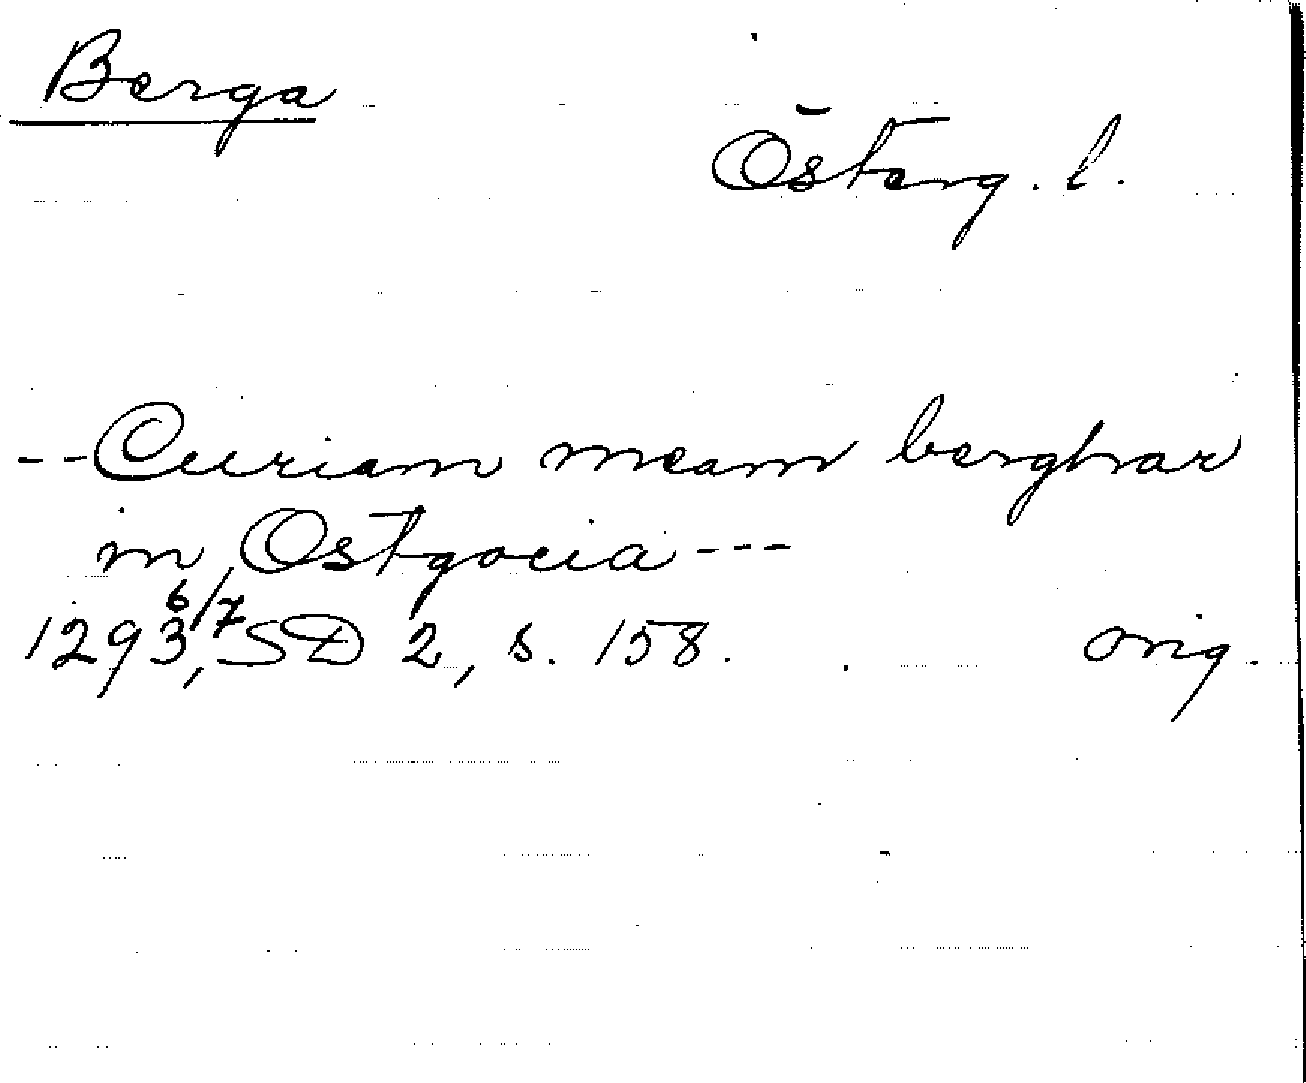 Berga
Österg. l.
--Curiam meam berghar
in Ostgocia---
1293 6/7, SD 2, s. 158. orig.